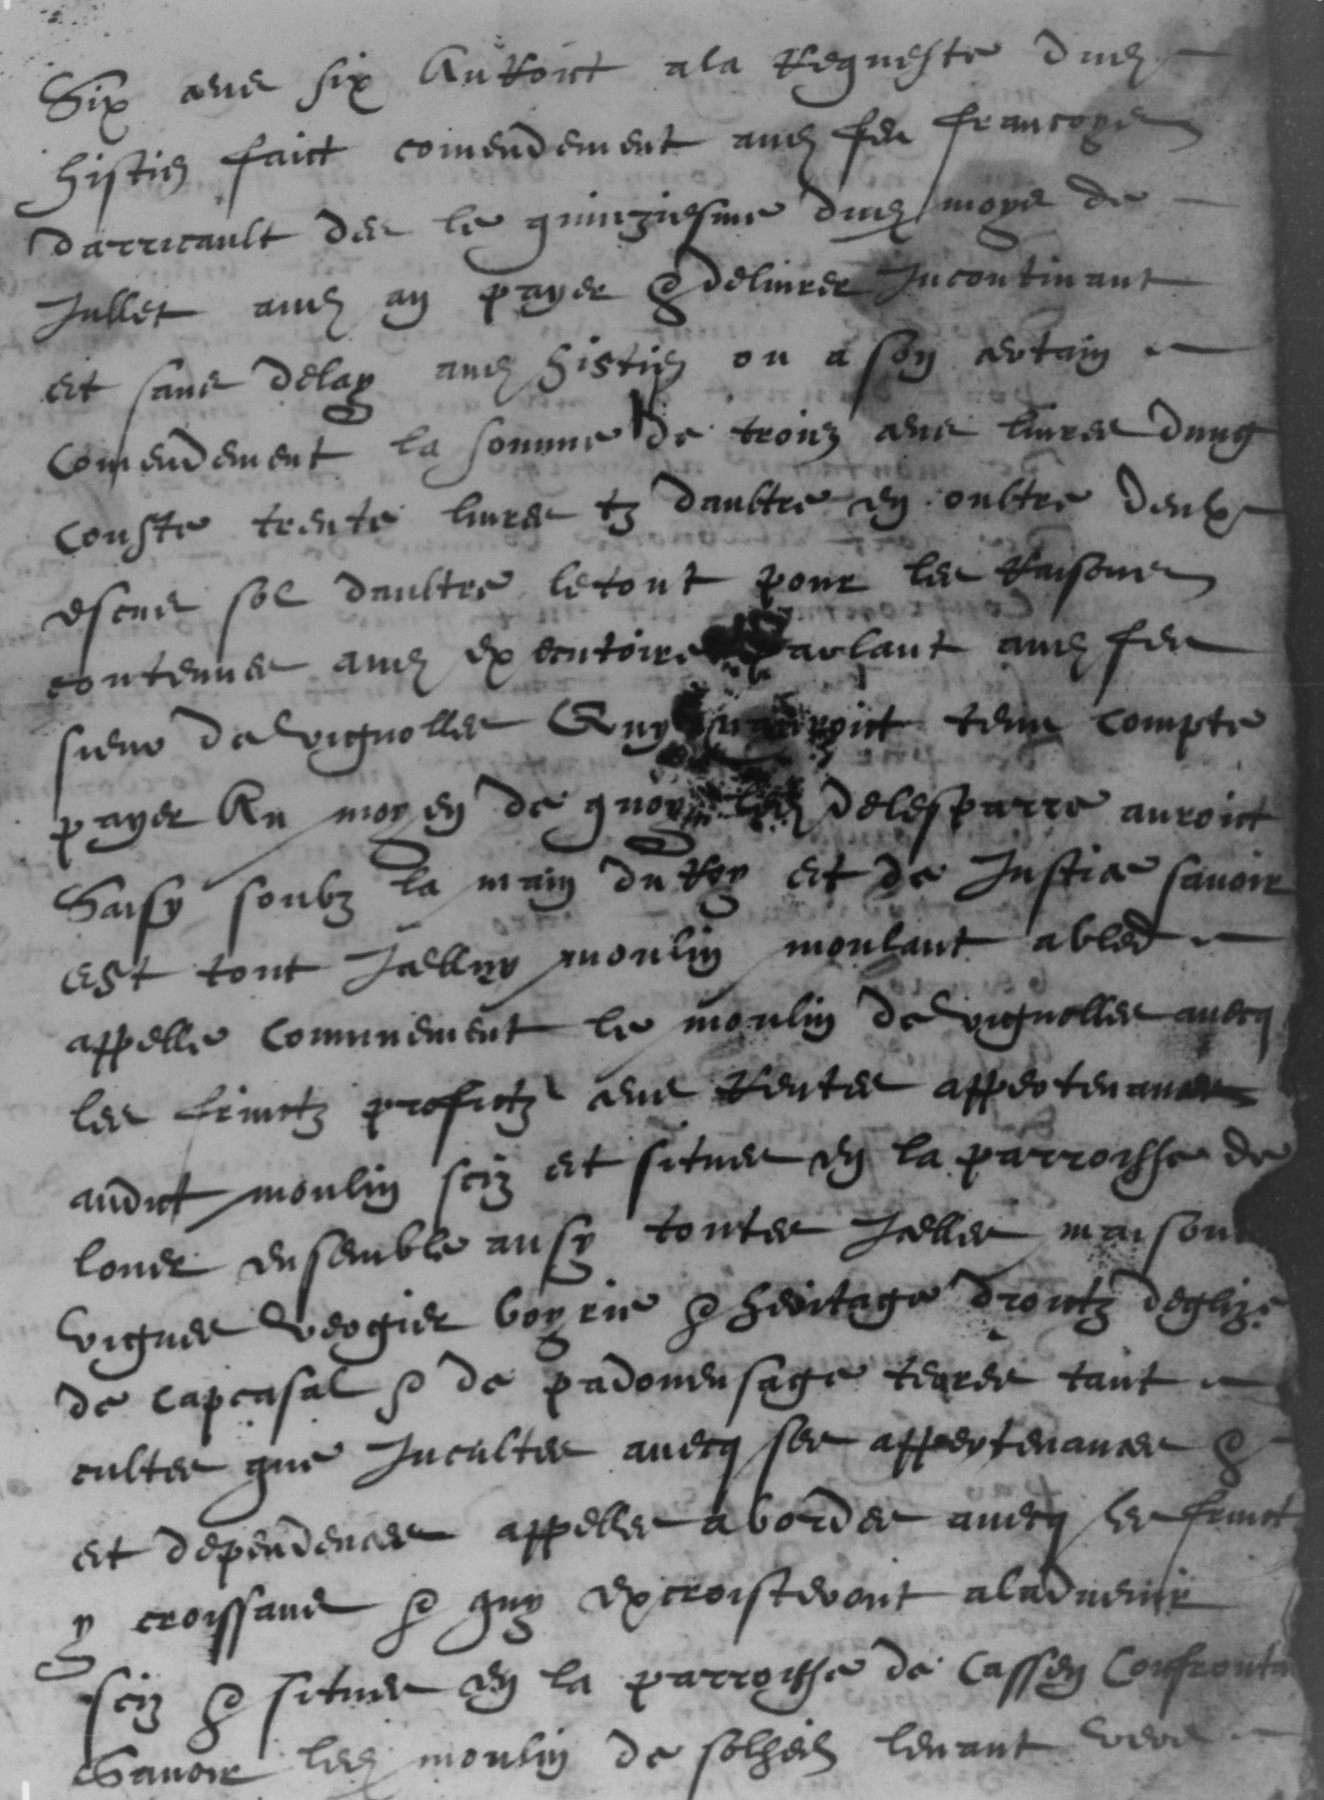 Six cens six Auroict a la Requeste dud
histier faict comendement aud feu francoys
darricault des le quinziesme dud moys de
Jullet aud an payer & delivrer Incontinant
et sans delay aud histier ou a son certain
Comendement la somme de troiz cens livres dung
Couste trente livres tz daultre en oultre deulx
escus sol daultre le tout pour les Raisons
contenues aud executoire parlant aud feu
sieur de vignolles Quy auroict tenu compte
payer Au moyen de quoy led delesparre auroict
Saisy soubz la main du Roy et de Justice savoir
est tout Icelluy moulin moulant a bled
appelle Communement le moulin de vignolles avecq
les fruictz profictz cens Rentes appertenances
audict moulin sciz et situes en la parroisse de
louer ensemble ausy toutes Icelles maison
vignes vergier boyrie & heritage droictz deglize
de Capcasal & de padouensage terres tant
cultes que Incultes avecq ses appertenances &
et dependences appelles a bordes avecq les fruict
y croissans & quy excroisteront a ladvenir
sciz & situes en la parroisse de Cassen Confronta
Savoir led moulin de levant vers